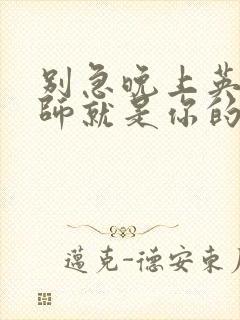 别急晚上英
师就是你的
邁克-德安東尼